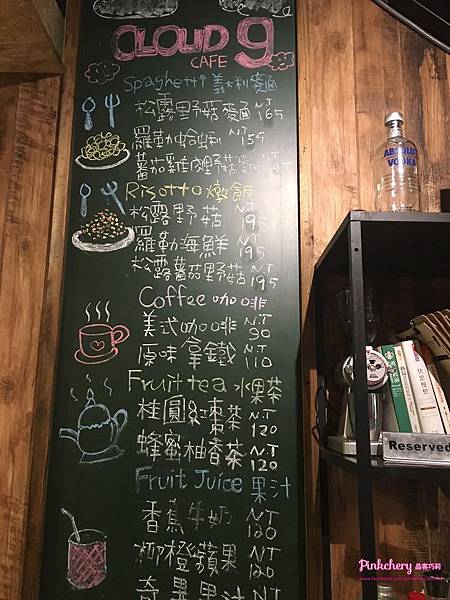 CLOUD 9
CAFE
Spaghetti 義大利麵
松露野菇麵 NT 165
羅勒蛤蜊 NT 155
蕃茄雞肉野菇
Risotto 燉飯
松露野菇 NT 195
羅勒海鮮 NT 195
松露蕃茄野菇 NT 195
Coffee 咖啡
美式咖啡 NT 90
原味拿鐵 NT 110
Fruit tea 水果茶
桂圓紅棗茶 NT 120
蜂蜜柚香茶 NT 120
Fruit Juice 果汁
香蕉牛奶 NT 120
柳橙蘋果 NT 120
奇異果汁 NT
ABSOLUT
VODKA
Reserved
Pinkchery 品客巧莉